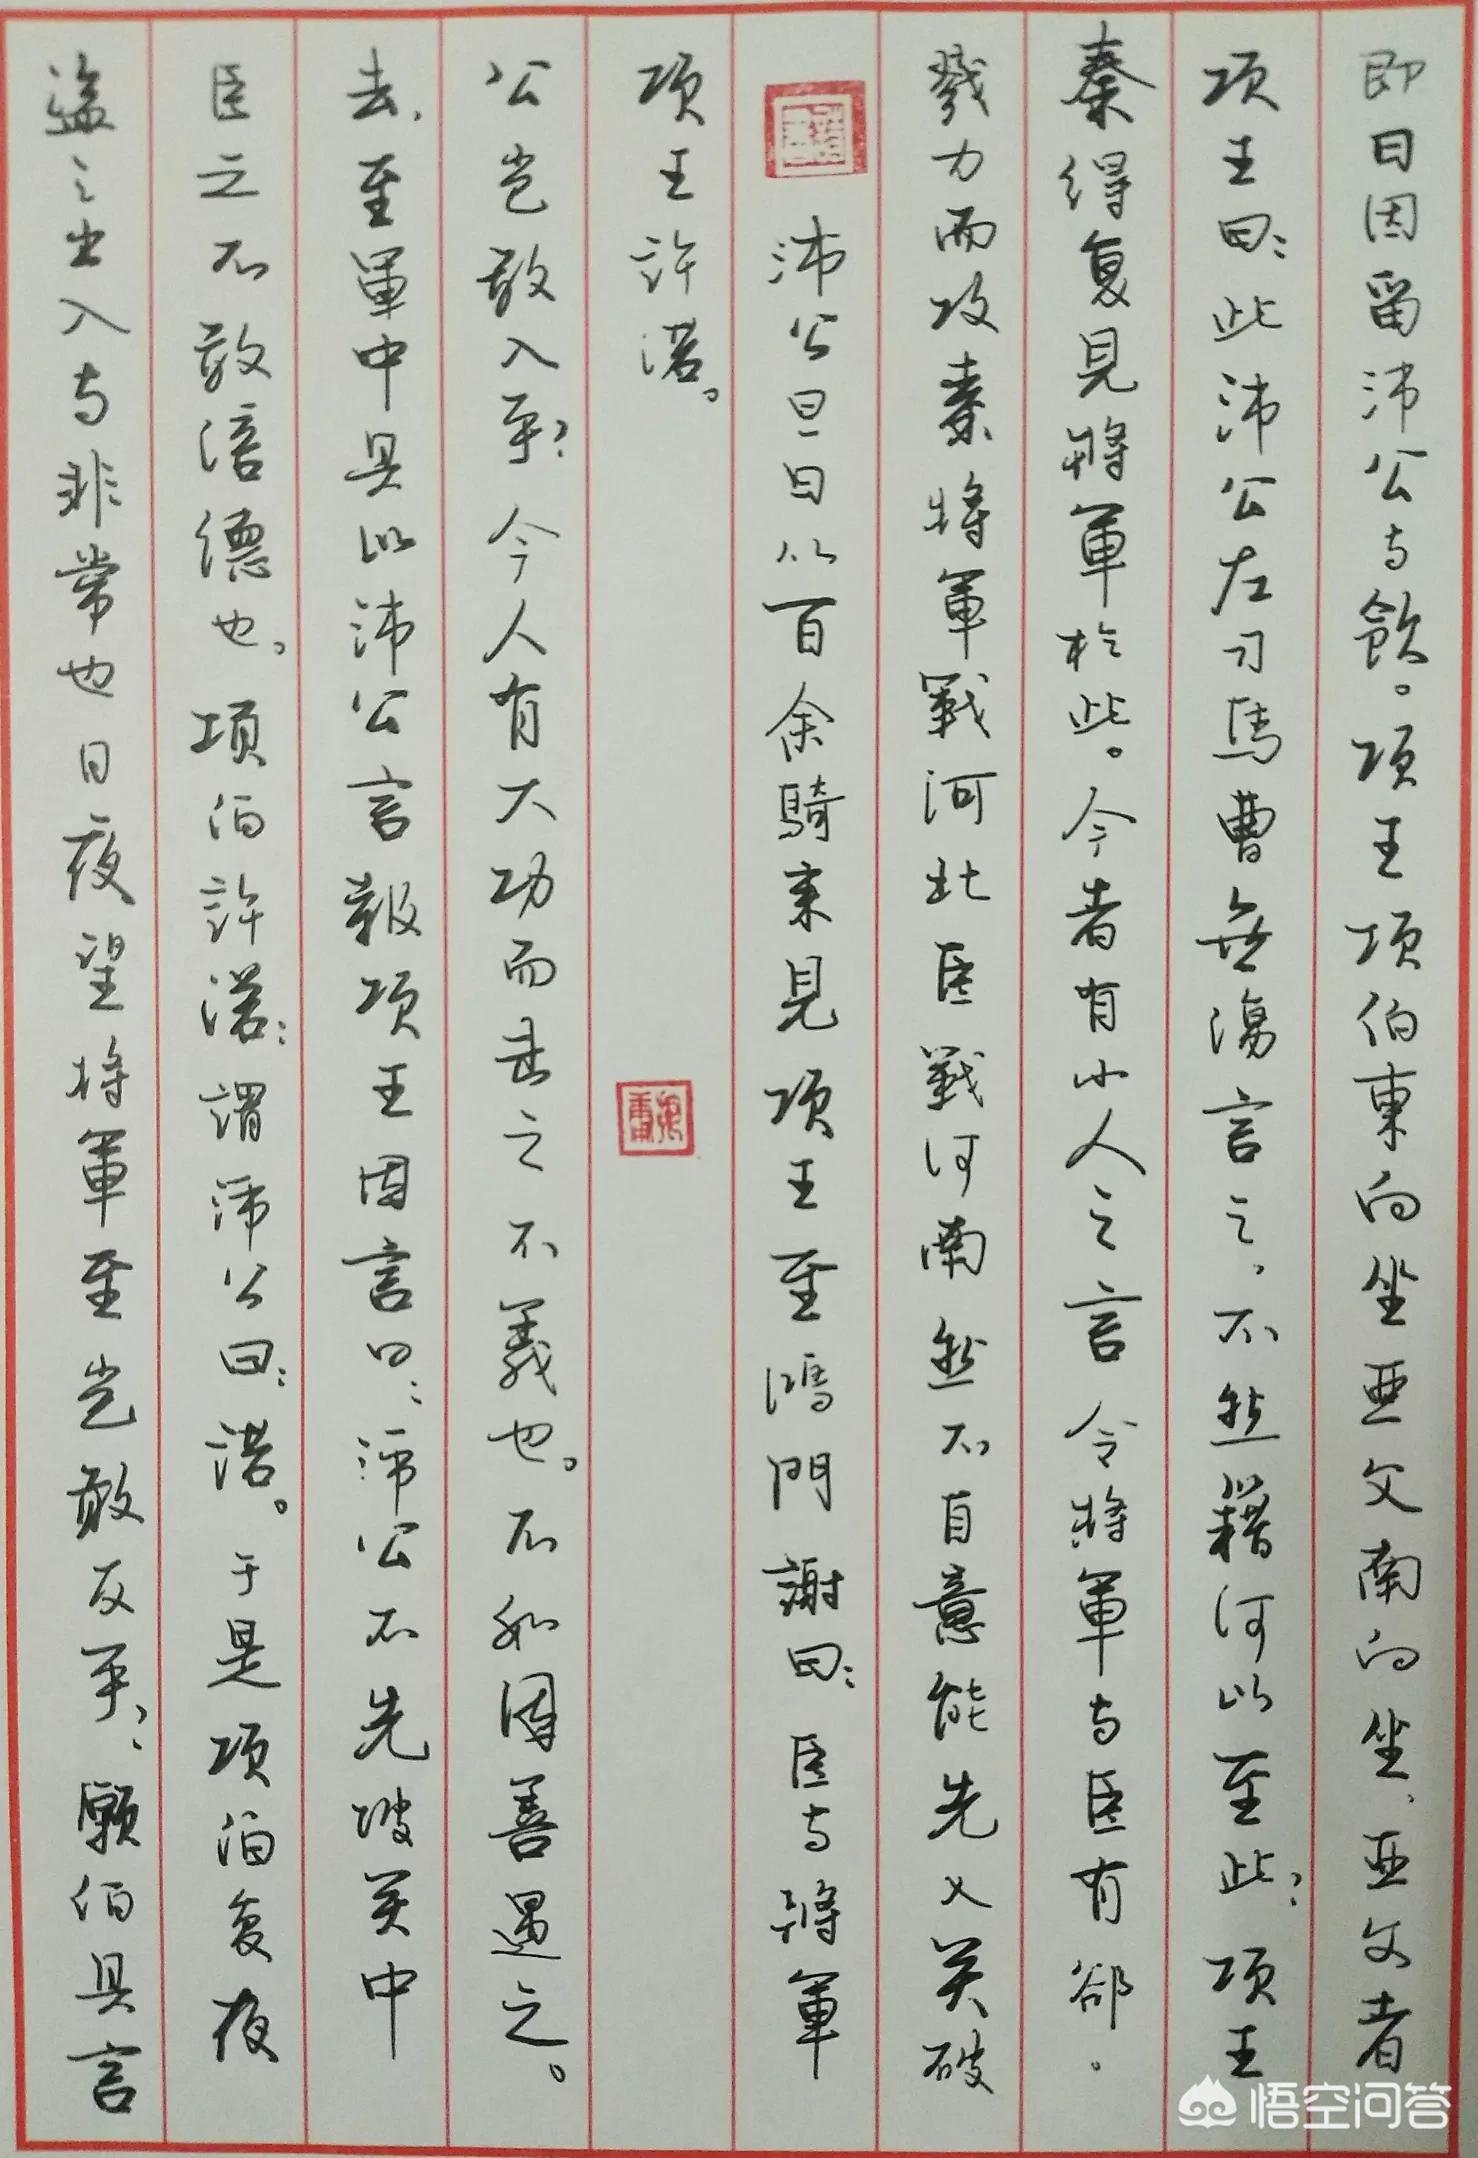 即日因留沛公与飲。项王项伯東向坐亚父南向坐、亚父者
项王曰:此沛公左司馬曹無傷言之,不然籍何以至此?项王
秦得复見将軍於此。今者有小人之言令将軍与臣有郤.
戮力而攻秦将軍戰河北臣戰河南然不自意能先入关破
沛公旦日以百余騎来見项王至鴻門謝曰:臣与将軍
项王許诺。
公岂敢入乎?今人有大功而击之不義也。不如因善遇之。
去,至軍中具以沛公言報项王因言曰:沛公不先破关中
臣之不敢倍德也。项伯許诺:謂沛公曰:诺。于是项伯复夜
盗之出入与非常也日夜望将軍至岂敢反乎?願伯具言
悟空问答